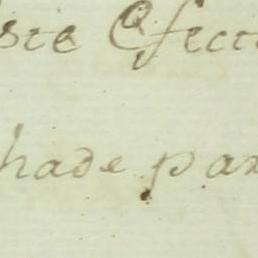 ste Efect
hade par